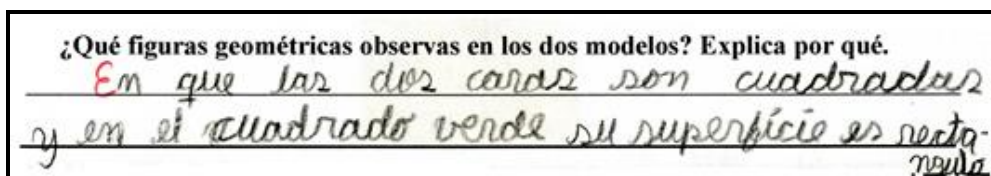 ¿Qué figuras geométricas observas en los dos modelos? Explica por qué.
En que las dos caras son cuadradas
y en el cuadrado verde su superficie es recta-
ngulo